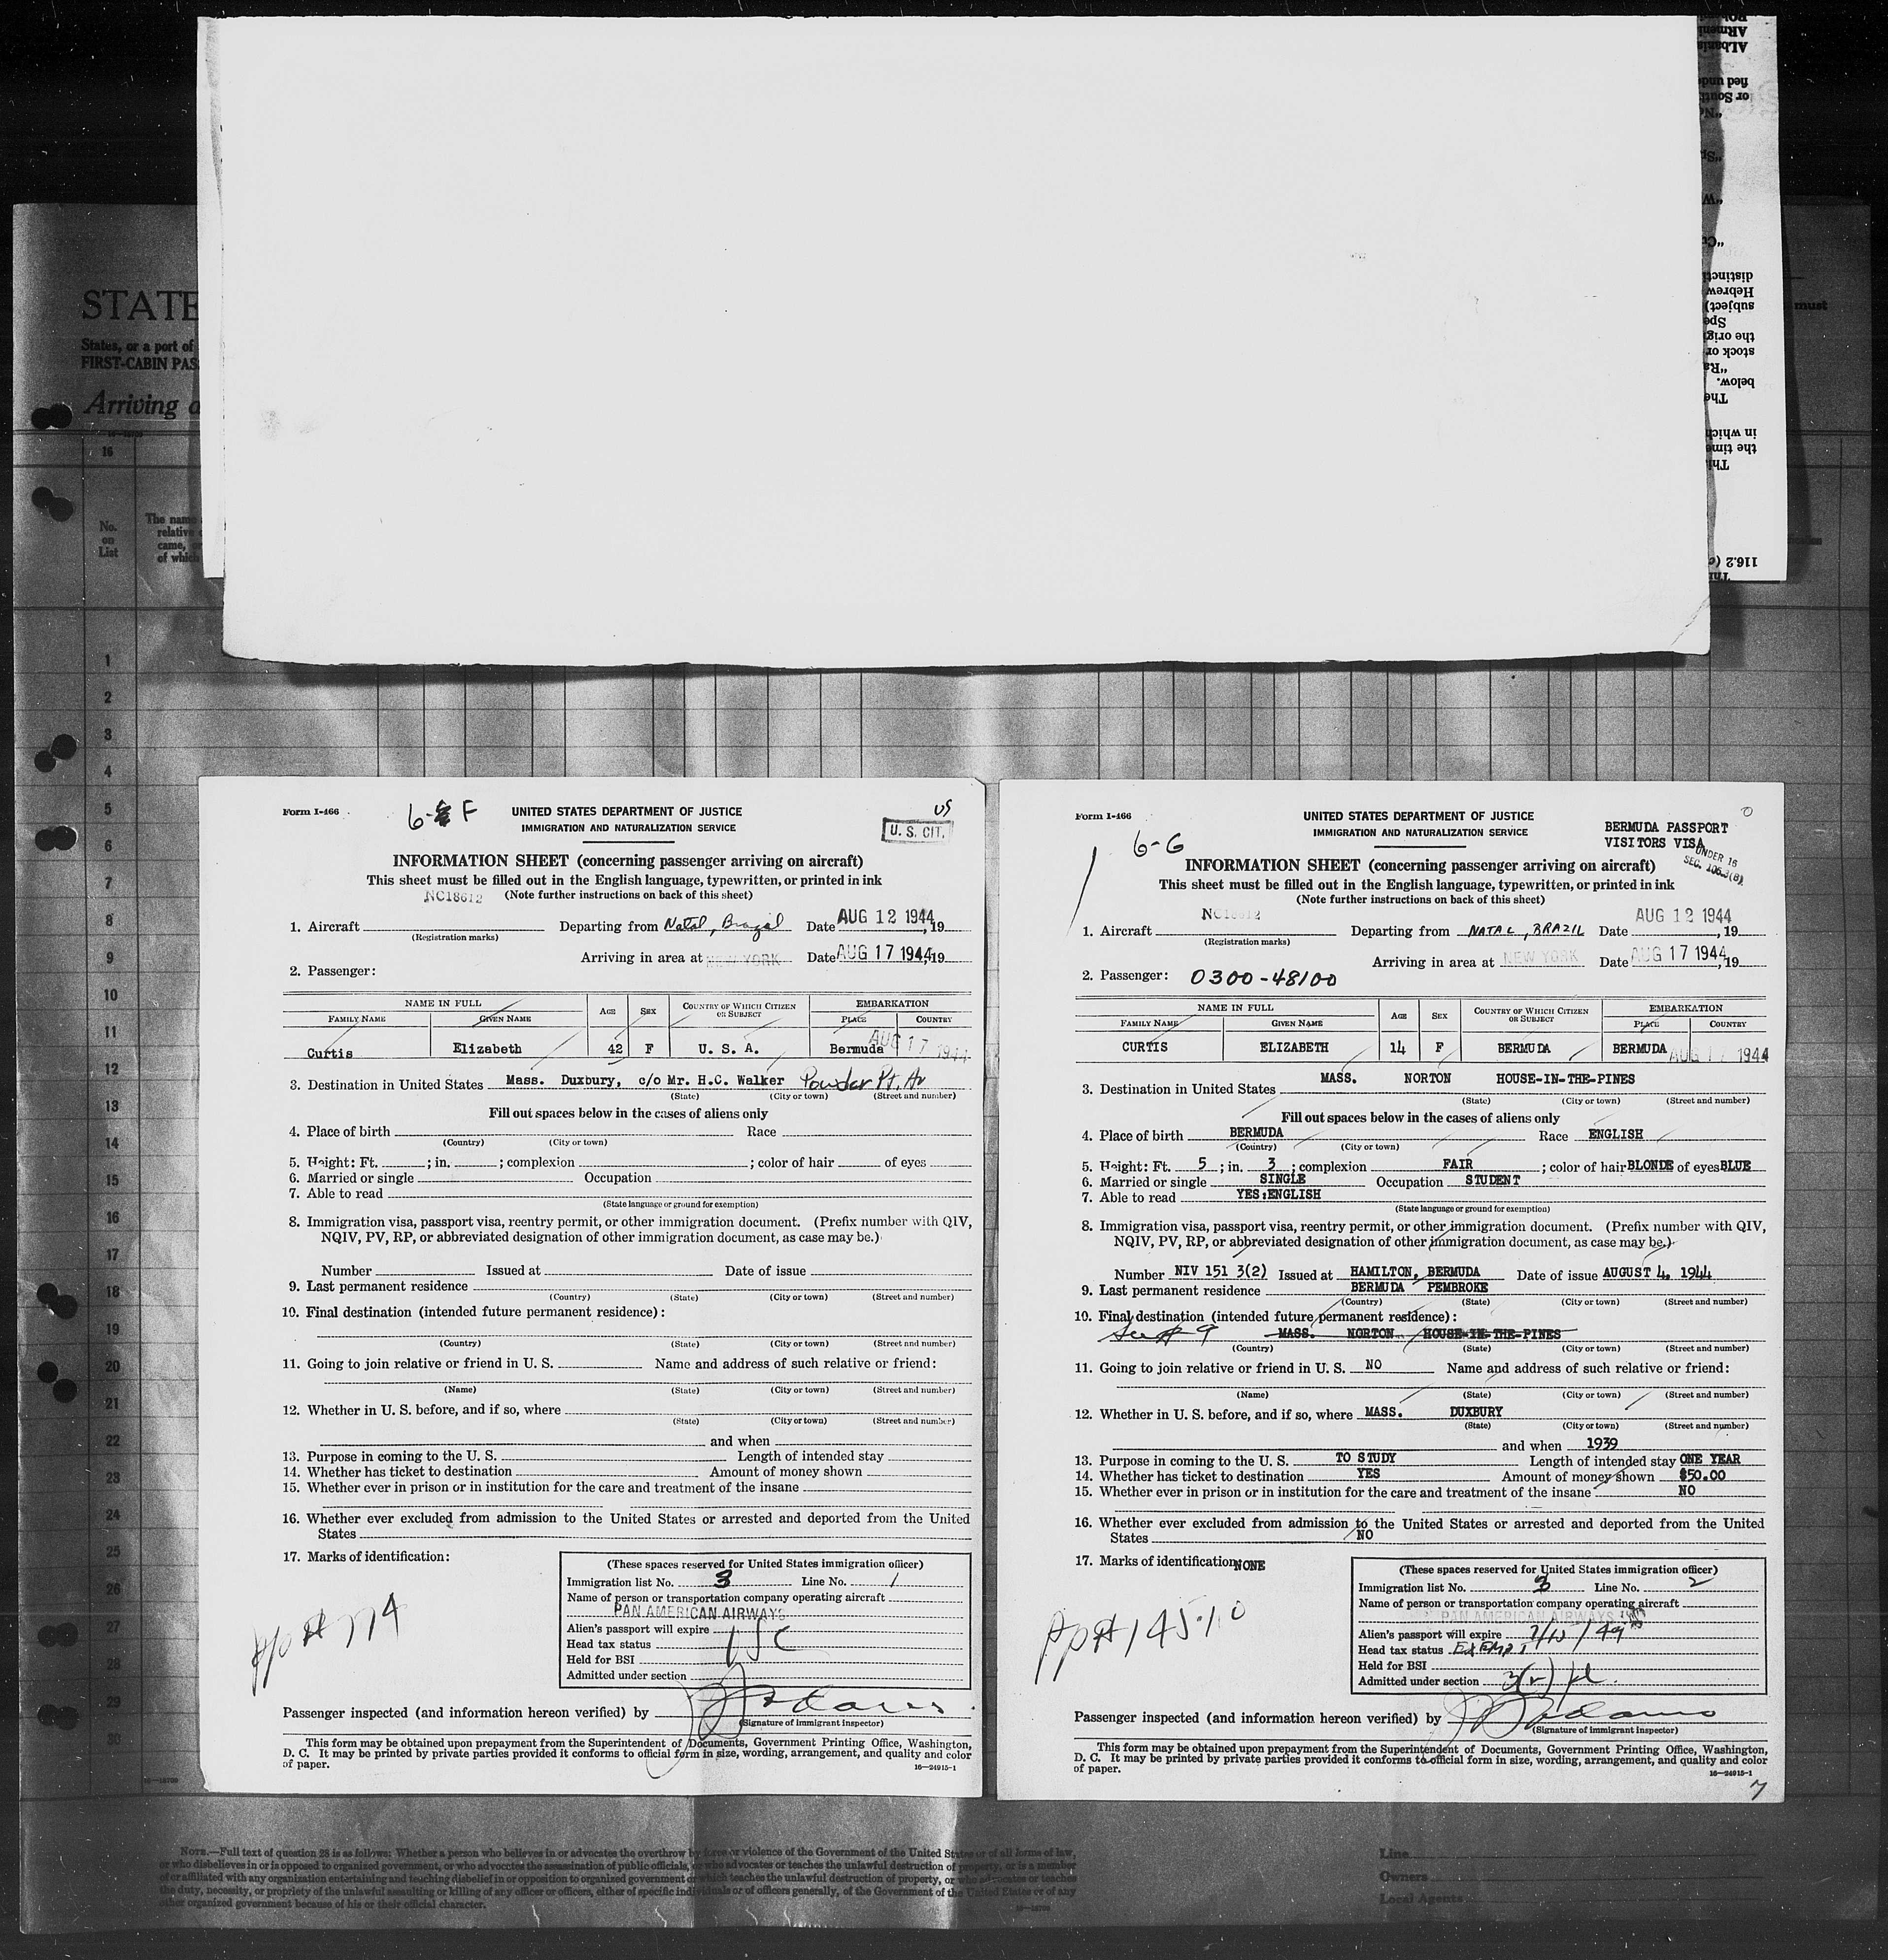 STATE
States, or a port of
FIRST-CABIN PAS
Arriving a
16
No.
on
List
The name
relative
came, or
of which
must
ALbania
fied und
or South
distincti
Hebrew
subject)
Spe
the orig
stock or
"Ra
below.
The
in which
the time
Thi
116.2 (c
1
2
3
4
5
6
7
8
9
10
11
12
13
14
15
16
17
18
19
20
21
22
23
24
25
26
27
28
29
30
Form I-466
6-F
UNITED STATES DEPARTMENT OF JUSTICE
IMMIGRATION AND NATURALIZATION SERVICE
US
U. S. CIT.
INFORMATION SHEET (concerning passenger arriving on aircraft)
This sheet must be filled out in the English language, typewritten, or printed in ink
NC18612 (Note further instructions on back of this sheet)
1. Aircraft Departing from Natal, Brazil Date AUG 12 1944, 19
(Registration marks)
Arriving in area at NEW YORK Date AUG 17 1944, 19
2. Passenger:
NAME IN FULL AGE SEX COUNTRY OF WHICH CITIZEN OR SUBJECT EMBARKATION
FAMILY NAME GIVEN NAME PLACE COUNTRY
Curtis Elizabeth 42 F U. S. A. Bermuda AUG 17 1944
3. Destination in United States Mass. Duxbury, c/o Mr. H.C. Walker Powder Pt. Av
(State) (City or town) (Street and number)
Fill out spaces below in the cases of aliens only
4. Place of birth Race
(Country) (City or town)
5. Height: Ft. ; in. ; complexion ; color of hair of eyes
6. Married or single Occupation
7. Able to read
(State language or ground for exemption)
8. Immigration visa, passport visa, reentry permit, or other immigration document. (Prefix number with QIV,
NQIV, PV, RP, or abbreviated designation of other immigration document, as case may be.)
Number Issued at Date of issue
9. Last permanent residence
(Country) (State) (City or town) (Street and number)
10. Final destination (intended future permanent residence):
(Country) (State) (City or town) (Street and number)
11. Going to join relative or friend in U. S. Name and address of such relative or friend:
(Name) (State) (City or town) (Street and number)
12. Whether in U. S. before, and if so, where
(State) (City or town) (Street and number)
and when
13. Purpose in coming to the U. S. Length of intended stay
14. Whether has ticket to destination Amount of money shown
15. Whether ever in prison or in institution for the care and treatment of the insane
16. Whether ever excluded from admission to the United States or arrested and deported from the United
States
17. Marks of identification:
(These spaces reserved for United States immigration officer)
Immigration list No. 3 Line No. 1
Name of person or transportation company operating aircraft
PAN AMERICAN AIRWAYS
Alien's passport will expire
Head tax status USC
Held for BSI
Admitted under section
pp# 774
Passenger inspected (and information hereon verified) by
(Signature of immigrant inspector)
This form may be obtained upon prepayment from the Superintendent of Documents, Government Printing Office, Washington,
D. C. It may be printed by private parties provided it conforms to official form in size, wording, arrangement, and quality and color
of paper.
16—24915-1
Form I-466
6-G
UNITED STATES DEPARTMENT OF JUSTICE
IMMIGRATION AND NATURALIZATION SERVICE
BERMUDA PASSPORT
VISITORS VISA
UNDER 16
SEC. 106.3(B)
INFORMATION SHEET (concerning passenger arriving on aircraft)
This sheet must be filled out in the English language, typewritten, or printed in ink
(Note further instructions on back of this sheet)
NC18612
1. Aircraft Departing from NATAL, BRAZIL Date AUG 12 1944, 19
(Registration marks)
Arriving in area at NEW YORK Date AUG 17 1944, 19
2. Passenger: 0300-48100
NAME IN FULL AGE SEX COUNTRY OF WHICH CITIZEN OR SUBJECT EMBARKATION
FAMILY NAME GIVEN NAME PLACE COUNTRY
CURTIS ELIZABETH 14 F BERMUDA BERMUDA AUG 17 1944
3. Destination in United States MASS. NORTON HOUSE-IN-THE-PINES
(State) (City or town) (Street and number)
Fill out spaces below in the cases of aliens only
4. Place of birth BERMUDA Race ENGLISH
(Country) (City or town)
5. Height: Ft. 5 ; in. 3 ; complexion FAIR ; color of hair BLONDE of eyes BLUE
6. Married or single SINGLE Occupation STUDENT
7. Able to read YES:ENGLISH
(State language or ground for exemption)
8. Immigration visa, passport visa, reentry permit, or other immigration document. (Prefix number with QIV,
NQIV, PV, RP, or abbreviated designation of other immigration document, as case may be.)
Number NIV 151 3(2) Issued at HAMILTON, BERMUDA Date of issue AUGUST 4, 1944
9. Last permanent residence BERMUDA PEMBROKE
(Country) (State) (City or town) (Street and number)
10. Final destination (intended future permanent residence):
See # 9 MASS. NORTON HOUSE-IN-THE-PINES
(Country) (State) (City or town) (Street and number)
11. Going to join relative or friend in U. S. NO Name and address of such relative or friend:
(Name) (State) (City or town) (Street and number)
12. Whether in U. S. before, and if so, where MASS. DUXBURY
(State) (City or town) (Street and number)
and when 1939
13. Purpose in coming to the U. S. TO STUDY Length of intended stay ONE YEAR
14. Whether has ticket to destination YES Amount of money shown $50.00
15. Whether ever in prison or in institution for the care and treatment of the insane NO
16. Whether ever excluded from admission to the United States or arrested and deported from the United
States NO
17. Marks of identification: NONE
(These spaces reserved for United States immigration officer)
Immigration list No. 3 Line No. 2
Name of person or transportation company operating aircraft
PAN AMERICAN AIRWAYS
Alien's passport will expire
Head tax status EXEMPT
Held for BSI
Admitted under section 3(2)
pp# 14510
Passenger inspected (and information hereon verified) by
(Signature of immigrant inspector)
This form may be obtained upon prepayment from the Superintendent of Documents, Government Printing Office, Washington,
D. C. It may be printed by private parties provided it conforms to official form in size, wording, arrangement, and quality and color
of paper.
16—24915-1
7
NOTE.—Full text of question 28 is as follows: Whether a person who believes in or advocates the overthrow by force or violence of the Government of the United States or of all forms of law,
or who disbelieves in or is opposed to organized government, or who advocates the assassination of public officials, or who advocates or teaches the unlawful destruction of property, or is a member
of or affiliated with any organization entertaining and teaching disbelief in or opposition to organized government or which teaches the unlawful destruction of property, or who advocates or teaches
the duty, necessity, or propriety of the unlawful assaulting or killing of any officer or officers, either of specific individuals or of officers generally, of the Government of the United States or of any
other organized government because of his or their official character.
Line
Owners
Local Agents